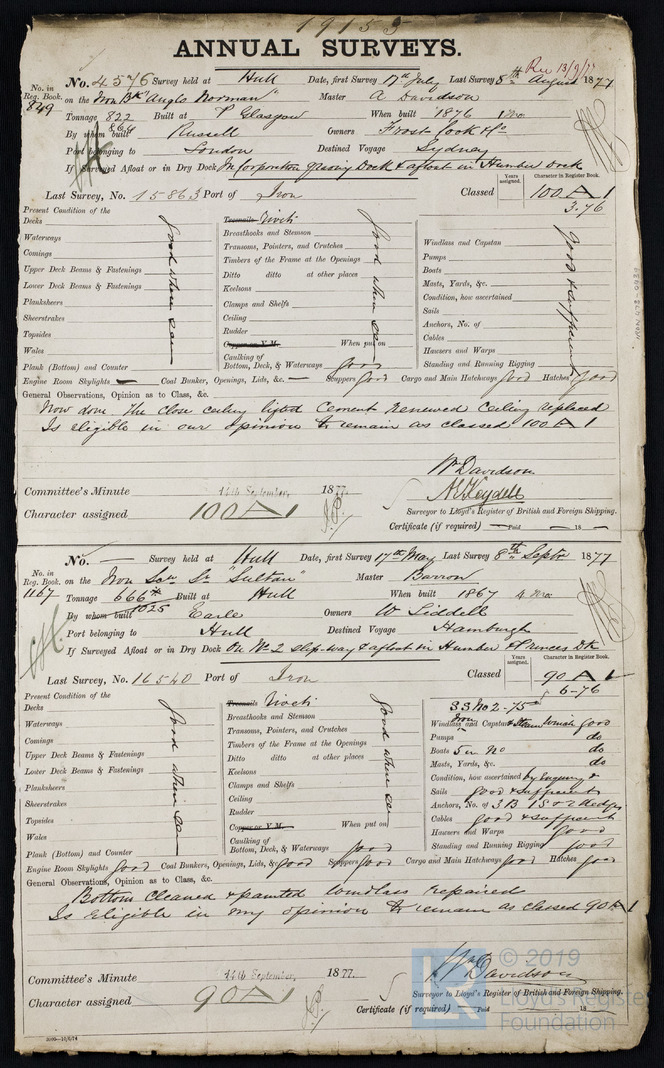 19155
ANNUAL SURVEYS.
Rec 13/9/77
No. in Reg. Book. 849
No. 4576 Survey held at Hull Date, first Survey 17th July Last Survey 8th August 1877
on the Iron Bk "Anglo Norman" Master A Davidson
Tonnage 822 864 Built at P. Glasgow When built 1876
By whom built Russell Owners Frost Cook & Co
Port belonging to London Destined Voyage Sydney
If Surveyed Afloat or in Dry Dock In Corporation Graving Dock & afloat in Humber Dock
Years assigned. Character in Register Book.
Last Survey, No. 15863 Port of Iron Classed 100 A 1
3.76
Present Condition of the
Decks
Waterways
Comings
Upper Deck Beams & Fastenings
Lower Deck Beams & Fastenings
Planksheers
Sheerstrakes
Topsides
Wales
Plank (Bottom) and Counter
Good where seen
Treenails Rivets
Breasthooks and Stemson
Transoms, Pointers, and Crutches
Timbers of the Frame at the Openings
Ditto ditto at other places
Keelsons
Clamps and Shelfs
Ceiling
Rudder
Copper or Y.M. When put on
Caulking of Bottom, Deck, & Waterways good
Good where seen
Windlass and Capstan
Pumps
Boats
Masts, Yards, &c.
Condition, how ascertained
Sails
Anchors, No. of
Cables
Hawsers and Warps
Standing and Running Rigging
Good & sufficient
Engine Room Skylights — Coal Bunker, Openings, Lids, &c. — Scuppers good Cargo and Main Hatchways good Hatches good
General Observations, Opinion as to Class, &c.
Now done The close ceiling lifted Cement renewed Ceiling replaced
Is eligible in our opinion to remain as classed 100 A 1
Wm Davidson
Committee's Minute 14th September, 1877.
Character assigned 100 A 1
Surveyor to Lloyd's Register of British and Foreign Shipping.
Certificate (if required) — Paid — 18 —
No. in Reg. Book. 1167
No. — Survey held at Hull Date, first Survey 17th May Last Survey 8th Septr 1877
on the Iron Scw Sr "Sultan" Master Barron
Tonnage 666 1025 Built at Hull When built 1867 4 Mo
By whom built Earle Owners W Liddell
Port belonging to Hull Destined Voyage Hamburgh
If Surveyed Afloat or in Dry Dock On No 2 slip-way & afloat in Humber & Princes Dk
Years assigned. Character in Register Book.
Last Survey, No. 16540 Port of Iron Classed 90 A 1
6-76
SS No 2-75
Present Condition of the
Decks
Waterways
Comings
Upper Deck Beams & Fastenings
Lower Deck Beams & Fastenings
Planksheers
Sheerstrakes
Topsides
Wales
Plank (Bottom) and Counter
Good where seen
Treenails Rivets
Breasthooks and Stemson
Transoms, Pointers, and Crutches
Timbers of the Frame at the Openings
Ditto ditto at other places
Keelsons
Clamps and Shelfs
Ceiling
Rudder
Copper or Y.M. When put on
Caulking of Bottom, Deck, & Waterways good
Good where seen
Windlass Iron and Capstan & Steam Winch good
Pumps do
Boats 5 in No do
Masts, Yards, &c. do
Condition, how ascertained by Enquiry &
Sails good & sufficient
Anchors, No. of 3 B 1 S & 2 Kedges
Cables good & sufficient
Hawsers and Warps good
Standing and Running Rigging good
Engine Room Skylights good Coal Bunkers, Openings, Lids, &c. good Scuppers good Cargo and Main Hatchways good Hatches good
General Observations, Opinion as to Class, &c.
Bottom cleaned & painted windlass repaired
Is eligible in my opinion to remain as classed 90 A 1
Committee's Minute 14th September, 1877.
Character assigned 90 A 1
Wm Davidson
Surveyor to Lloyd's Register of British and Foreign Shipping.
Certificate (if required) Paid 18
© 2019
Lloyd's Register
Foundation